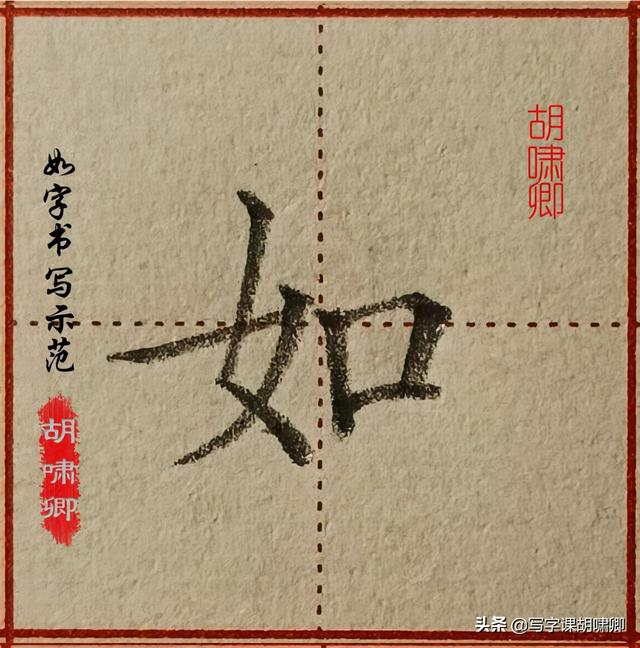 如字书写示范
胡啸卿
如
胡啸卿
头条 @写字课胡啸卿